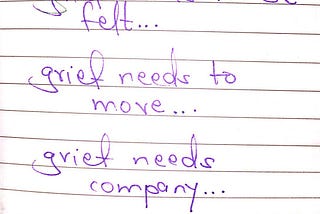 felt...
grief needs to
move...
grief needs
company...